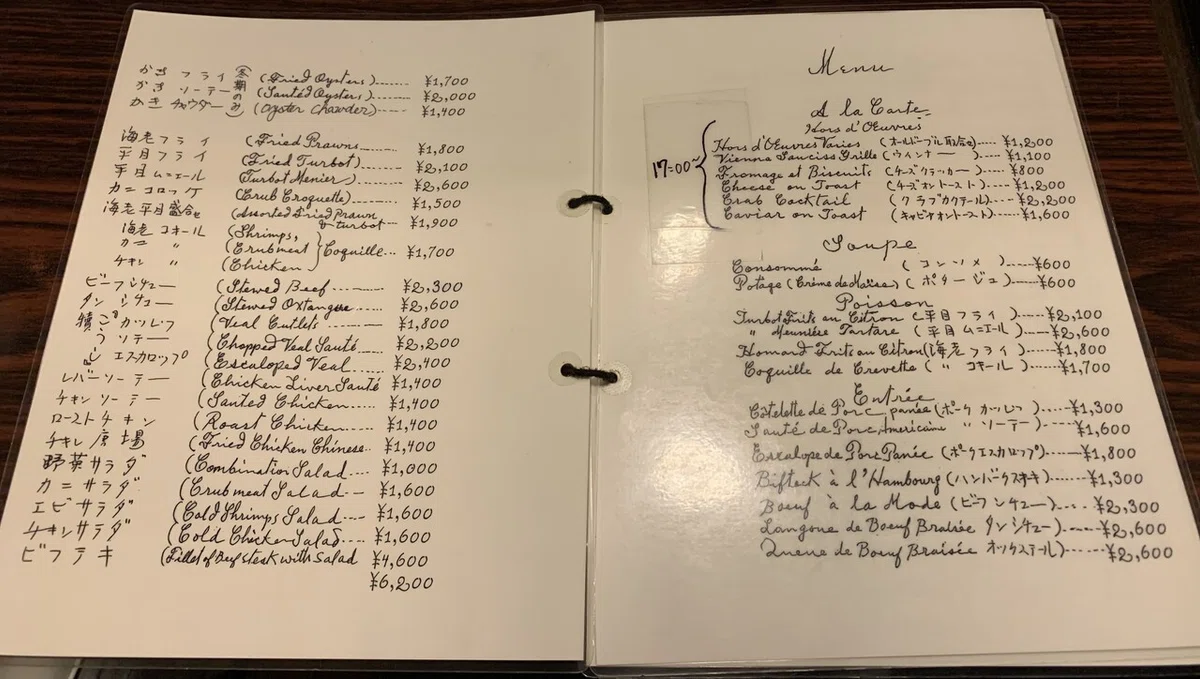 かき フライ (Fried Oysters)....... ¥1,700
かき ソーテー (Sauted Oysters)....... ¥2,000
かき チャウダー (Oyster Chawder)..... ¥1,400
(冬期のみ)
海老フライ (Fried Prawns....... ¥1,800
平目フライ (Fried Turbot)....... ¥2,100
平目ムニエール (Turbot Menier)....... ¥2,600
カニコロッケ (Crub Croquette)....... ¥1,500
海老平目盛合せ (Assorted Fried Prawn & turbot... ¥1,900
海老 コキール (Shrimps,
カニ 〃 (Crubmeat } Coquille... ¥1,700
チキン 〃 (Chicken
ビーフシチュー (Stewed Beef....... ¥2,300
タンシチュー (Stewed Oxtangue....... ¥2,600
犢 カツレツ (Veal Cutlets --------- ¥1,800
ソテー (Chopped Veal Sauté....... ¥2,200
エスカロップ (Escaloped Veal....... ¥2,400
レバーソーテー (Chicken Liver Sauté ¥1,400
チキンソーテー (Sauted Chicken..... ¥1,400
ローストチキン (Roast Chicken..... ¥1,400
チキン唐揚 (Fried Chicken Chinese.. ¥1,400
野菜サラダ (Combination Salad.... ¥1,000
カニサラダ (Crubmeat Salad--- ¥1,600
エビサラダ (Cold Shrimps Salad---- ¥1,600
チキンサラダ (Cold Chicken Salad.... ¥1,600
ビフテキ (Fillet of Beefsteak with Salad ¥4,600
¥6,200
Menu
A la Carte
Hors d'Œuvres
17=00~
Hors d'Œuvres Varies (オールドーブル取合せ).... ¥1,200
Vienna Sauciss Grille (ウィンナー)..... ¥1,100
Fromage et Biscuits (チーズクラッカー)..... ¥800
Cheese on Toast (チーズオントースト)...... ¥1,200
Crab Cocktail (クラブカクテール)..... ¥2,200
Caviar on Toast (キャビヤオントースト).... ¥1,600
Soupe
Consommé (コンソメ)-----¥600
Potage (Crème de Maïse) (ポタージュ)-----¥600
Poisson
Turbot Frits au Citron (平目フライ)......¥2,100
〃 Meunière Tartare (平目ムニエール).....¥2,600
Homard Frits au Citron (海老フライ).....¥1,800
Coquille de Crevette (〃 コキール).....¥1,700
Entrée
Côtelette de Porc panée (ポークカツレツ).....¥1,300
Sauté de Porc Americaine 〃 ソーテー).....¥1,600
Escalope de Porc Panée (ポークエスカロップ).....¥1,800
Bifteck à l'Hambourg (ハンバークステキ).....¥1,300
Boeuf à la Mode (ビーフシチュー)..... ¥2,300
Langone de Boeuf Braisée タンシチュー).....¥2,600
Queue de Boeuf Braisée オックステール)......¥2,600